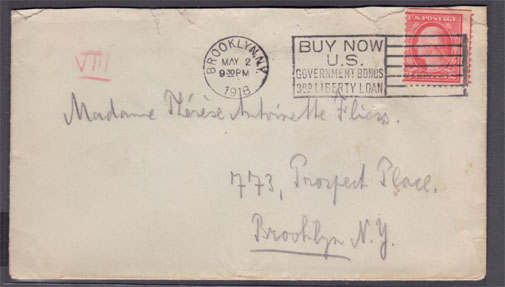 VIII
BROOKLYN, N.Y.
MAY 2
9 30 PM
1918
BUY NOW
U.S.
GOVERNMENT BONDS
3RD LIBERTY LOAN
U.S. POSTAGE
Madame Thérèse Antoinette
773, Prospect Place.
Brooklyn N.Y.